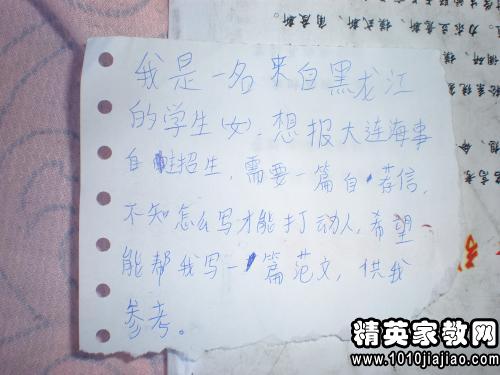 我是一名来自黑龙江
的学生(女).想报大连海事
自主招生,需要一篇自荐信,
不知怎么写才能打动人,希望
能帮我写一篇范文,供我
参考。
精英家教网
www.1010jiajiao.com